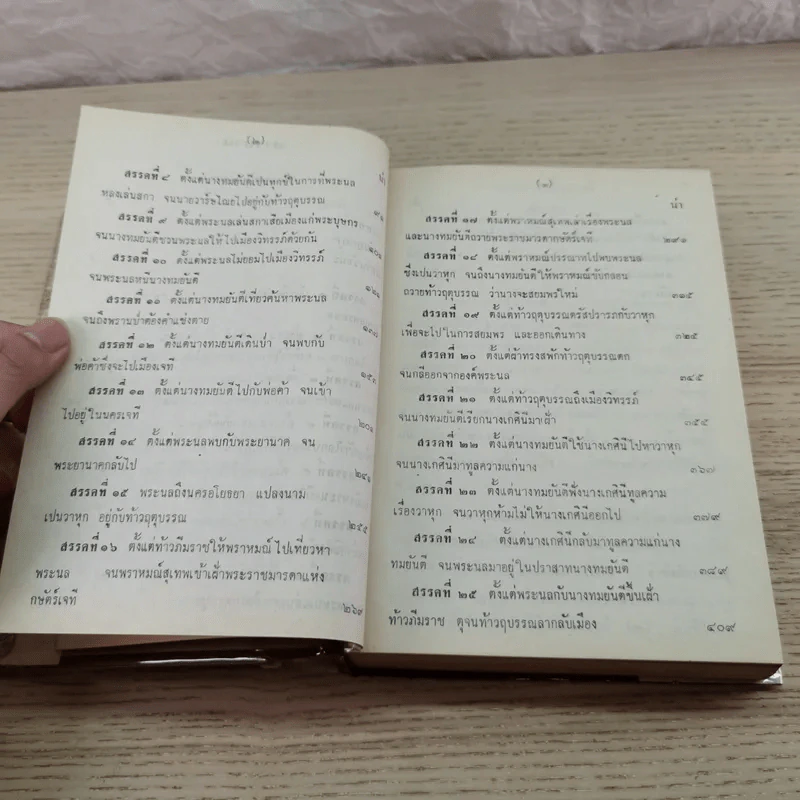 (๒)
น่า
สรรคที่ ๘ ตั้งแต่นางทมยันตีเป็นทุกข์ในการที่พระนล
หลงเล่นสกา จนนายวาร์ษไณยไปอยู่กับท้าวฤตุบรรณ
๙๑
สรรคที่ ๙ ตั้งแต่พระนลเล่นสกาเสียเมืองแก่พระบุษกร
จนนางทมยันตีชวนพระนลให้ไปเมืองวิทรรภ์ด้วยกัน
๑๐๑
สรรคที่ ๑๐ ตั้งแต่พระนลไม่ยอมไปเมืองวิทรรภ์
จนพระนลหนีนางทมยันตี
๑๒๑
สรรคที่ ๑๑ ตั้งแต่นางทมยันตีเที่ยวค้นหาพระนล
จนถึงพรานป่าต้องคำแช่งตาย
๑๓๗
สรรคที่ ๑๒ ตั้งแต่นางทมยันตีเดินป่า จนพบกับ
พ่อค้าซึ่งจะไปเมืองเจที
๑๕๓
สรรคที่ ๑๓ ตั้งแต่นางทมยันตีไปกับพ่อค้า จนเข้า
ไปอยู่ในนครเจที
๒๐๑
สรรคที่ ๑๔ ตั้งแต่พระนลพบกับพระยานาค จน
พระยานาคกลับไป
๒๔๑
สรรคที่ ๑๕ พระนลถึงนครอโยธยา แปลงนาม
เปนวาหุก อยู่กับท้าวฤตุบรรณ
๒๕๕
สรรคที่ ๑๖ ตั้งแต่ท้าวภีมราชให้พราหมณ์ไปเที่ยวหา
พระนล จนพราหมณ์สุเทพเข้าเฝ้าพระราชมารดาแห่ง
กษัตร์เจที
๒๖๙
(๓)
น่า
สรรคที่ ๑๗ ตั้งแต่พราหมณ์สุเทพเล่าเรื่องพระนล
และนางทมยันตีถวายพระราชมารดากษัตร์เจที
๒๙๑
สรรคที่ ๑๘ ตั้งแต่พราหมณ์ปรรณาทไปพบพระนล
ซึ่งเปนวาหุก จนถึงนางทมยันตีให้พราหมณ์ขับกลอน
ถวายท้าวฤตุบรรณ ว่านางจะสยมพรใหม่
๓๑๕
สรรคที่ ๑๙ ตั้งแต่ท้าวฤตุบรรณตรัสปรารภกับวาหุก
เพื่อจะไปในการสยมพร และออกเดินทาง
๓๒๕
สรรคที่ ๒๐ ตั้งแต่ผ้าทรงสพักท้าวฤตุบรรณตก
จนกลีออกจากองค์พระนล
๓๔๕
สรรคที่ ๒๑ ตั้งแต่ท้าวฤตุบรรณถึงเมืองวิทรรภ์
จนนางทมยันตีเรียกนางเกศินีมาเฝ้า
๓๕๕
สรรคที่ ๒๒ ตั้งแต่นางทมยันตีใช้นางเกศินีไปหาวาหุก
จนนางเกศินีมาทูลความแก่นาง
๓๖๗
สรรคที่ ๒๓ ตั้งแต่นางทมยันตีฟังนางเกศินีทูลความ
เรื่องวาหุก จนวาหุกห้ามไม่ให้นางเกศินีออกไป
๓๗๙
สรรคที่ ๒๔ ตั้งแต่นางเกศินีกลับมาทูลความแก่นาง
ทมยันตี จนพระนลมาอยู่ในปราสาทนางทมยันตี
๓๘๙
สรรคที่ ๒๕ ตั้งแต่พระนลกับนางทมยันตีขึ้นเฝ้า
ท้าวภีมราช ตุจนท้าวฤบรรณลากลับเมือง
๔๐๙